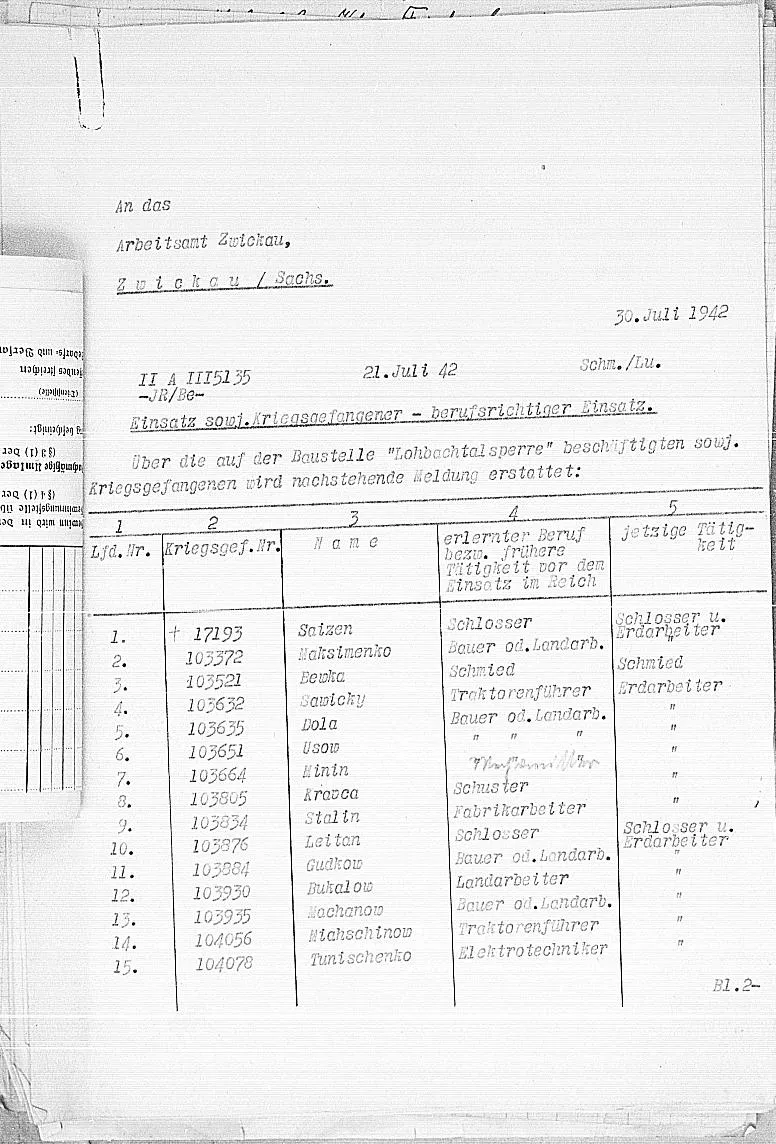 An das
Arbeitsamt Zwickau,
Z w i c k a u / Sachs.
30.Juli 1942
II A III5135 21.Juli 42 Schm./Lu.
-JR/Be-
Einsatz sowj.Kriegsgefangener - berufsrichtiger Einsatz.
Über die auf der Baustelle "Lohbachtalsperre" beschäftigten sowj.
Kriegsgefangenen wird nachstehende Meldung erstattet:
1 2 3 4 5
Lfd.Nr. Kriegsgef.Nr. N a m e erlernter Beruf jetzige Tätig-
bezw. frühere keit
Tätigkeit vor dem
Einsatz im Reich
1. + 17193 Saizen Schlosser Schlosser u.
Erdarbeiter
2. 103372 Maksimenko Bauer od.Landarb. "
3. 103521 Bewka Schmied Schmied
4. 103632 Sawicky Traktorenführer Erdarbeiter
5. 103635 Dola Bauer od.Landarb. "
6. 103651 Usow " " " "
7. 103664 Minin "
8. 103805 Kravca Schuster "
9. 103834 Stalin Fabrikarbeiter "
10. 103876 Leitan Schlosser Schlosser u.
Erdarbeiter
11. 103884 Gudkow Bauer od.Landarb. "
12. 103930 Bukalow Landarbeiter "
13. 103935 Machanow Bauer od.Landarb. "
14. 104056 Miahschinow Traktorenführer "
15. 104078 Tunischenko Elektrotechniker "
Bl.2-
(§ 3 (1) der
(§ 4 (1) der